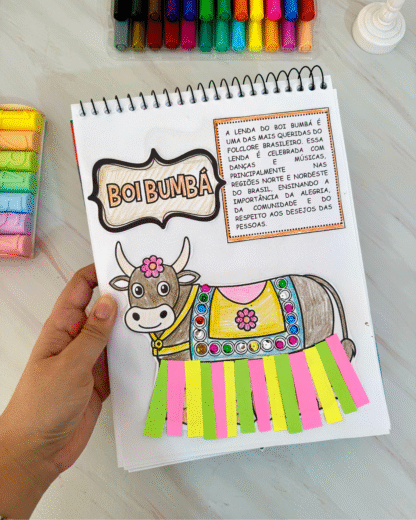 BOI BUMBÁ
A LENDA DO BOI BUMBÁ É
UMA DAS MAIS QUERIDAS DO
FOLCLORE BRASILEIRO. ESSA
LENDA É CELEBRADA COM
DANÇAS E MÚSICAS,
PRINCIPALMENTE NAS
REGIÕES NORTE E NORDESTE
DO BRASIL, ENSINANDO A
IMPORTÂNCIA DA ALEGRIA,
DA COMUNIDADE E DO
RESPEITO AOS DESEJOS DAS
PESSOAS.